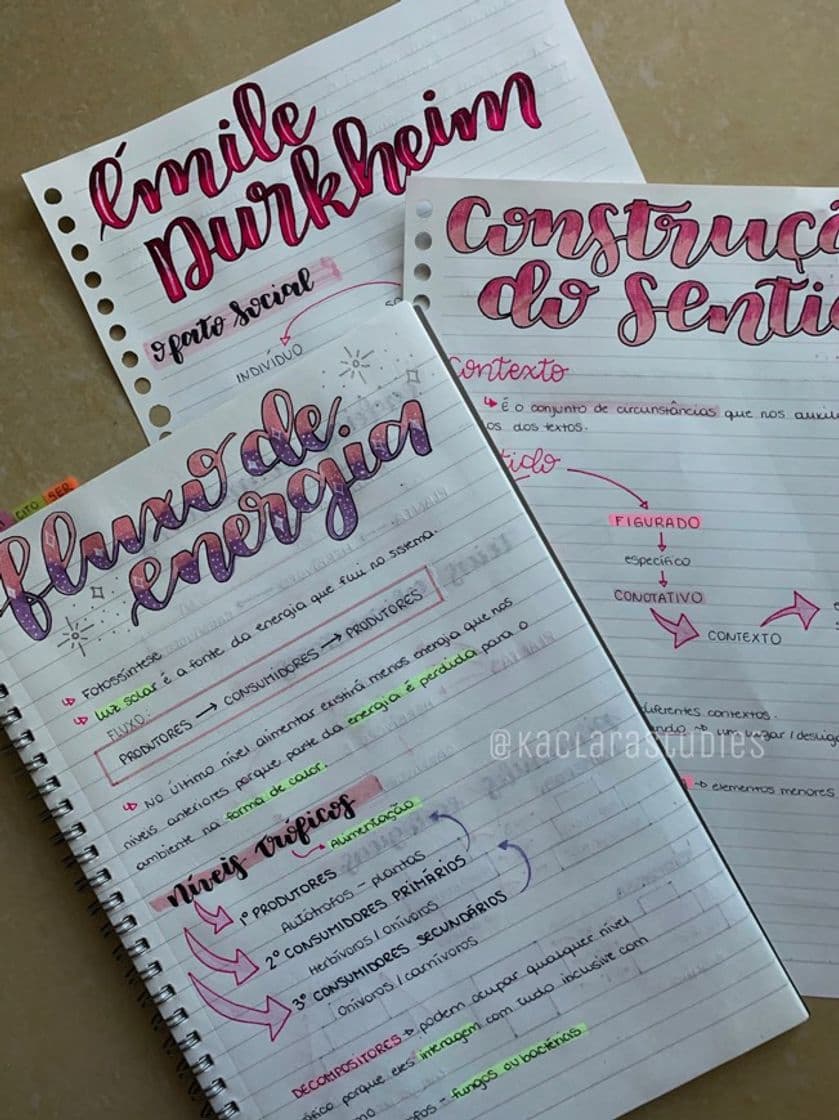 émile
Durkheim
o fato social
INDIVÍDUO
Construçã
do Senti
Contexto
É o conjunto de circunstâncias que nos auxili
os dos textos.
tido
FIGURADO
específico
CONOTATIVO
CONTEXTO
diferentes contextos.
um lugar / desloja
elementos menores
@KACLARASTUDIES
CITO
SER
fluxo de
energia
Fotossíntese
Luz solar é a fonte da energia que flui no sistema.
FLUXO:
PRODUTORES → CONSUMIDORES → PRODUTORES
No último nível alimentar existirá menos energia que nos
níveis anteriores porque parte da energia é perdida para o
ambiente na forma de calor.
Níveis tróficos
Alimentação
1º PRODUTORES
Autótrofos - plantas
2º CONSUMIDORES PRIMÁRIOS
Herbívoros / onívoros
3º CONSUMIDORES SECUNDÁRIOS
Onívoros / carnívoros
DECOMPOSITORES → podem ocupar qualquer nível
ófico porque eles interagem com tudo inclusive com
mo
ofos - fungos ou bactérias